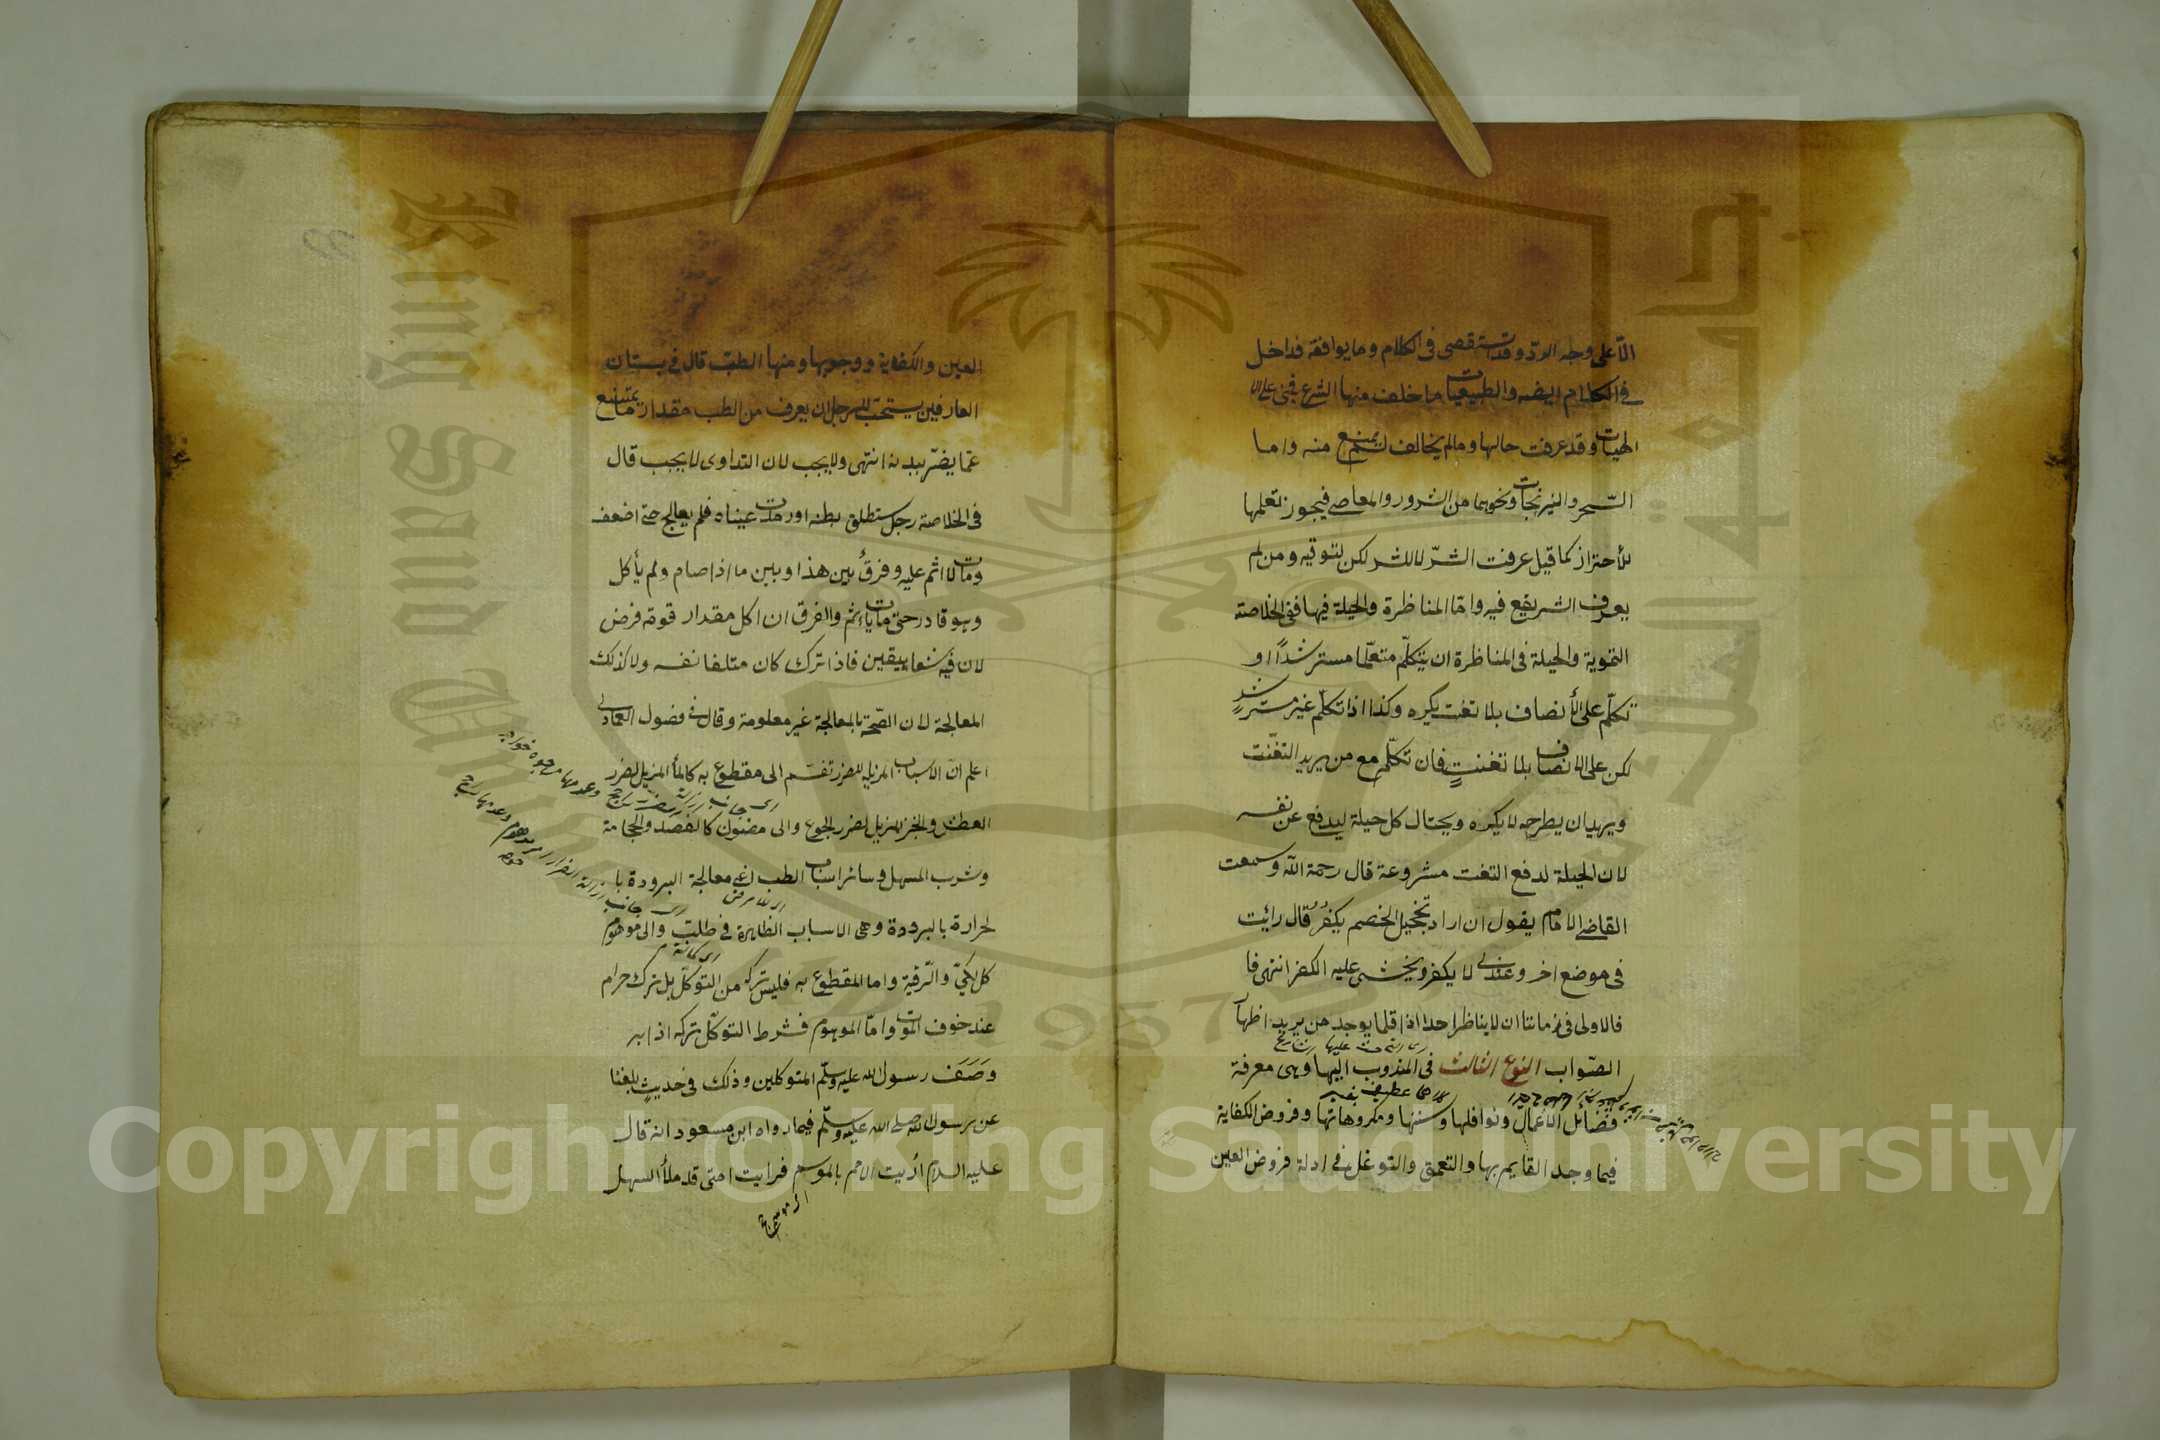 الا على وجه الرد وقد استقصى فى الكلام وما يوافقه فداخل
فى الكلام ايضه والطبيعيات ما خلف منها الشرع فبنى على الا
لهيات وقد عرفت حالها وما لم يخالف لم يمنع منه واما
السّحر والنيرنجات ونحوهما من الشرور والمعاصى فيجوز تعلمها
للأحتراز كما قيل عرفت الشرّ لا للشر لكن لتوقيه ومن لم
يعرف الشر يقع فيه وامّا المناظرة والحيلة فيها ففى الخلاصة
التموية والحيلة فى المناظرة ان يتكلّم متعلّما مسترشداً او
تكلّم على الأنصاف بلا تعنت يكره وكذا اذا تكلّم غير مسترشد
لكن على الانصاف بلا تعنتٍ فان تكلّم مع من يريد التعّنت
ويريد ان يطرحه لا يكره ويحتال كل حيلة ليدفع عن نفسه
لان الحيلة لدفع التعنت مشروعة قال رحمة الله وسمعت
القاضى الامام يقول ان اراد تخجيل الخصم يكفر قال رائيت
فى موضع اخر وعندى لا يكفر ويخشى عليه الكفر انتهى فا
فالاولى فى زماننا ان لا يناظر احدا اذ قلما يوجد من يريد اظهار
الصّواب النوع الثالث فى المندوب اليها وهى معرفة
فضائل الأعمال ونوافلها وسننها ومكروهاتها وفروض الكفاية
فيما وجد القايم بها والتعمق والتوغل فى ادلة فروض العين
العين والكفاية ووجوبها ومنها الطب قال فى بستان
العارفين يستحبّ للرجل ان يعرف من الطب مقدار ما يمتنع
عمّا يضرّ ببدنه انتهى ولا يجب لان التداوى لا يجب قال
فى الخلاصة رجل ستطلق بطنه او رمدت عيناه فلم يعالج حتى اضعف
ومات لا اثم عليه وفرقُ بين هذا وبين ما اذا صام ولم يأكل
وهو قادر حتى مات يأثم والفرق ان اكل مقدار قوته فرض
لان فيه شبعا بيقين فاذا ترك كان متلفا نفسه ولا كذلك
المعالجة لان الصّحة بالمعالجة غير معلومة وقال فى فصول العمادى
اعلم انّ الاسباب المزيلة للضرر تنقسم الى مقطوع به كالمأ المزيل لضرر
العطش والخبز المزيل لضرر الجوع والى مضنون كالفصد والحجامة
وشرب المسهل وسائر اسباب الطب اعنى معالجة البرودة با
لحرارة بالبرودة وهى الاسباب الظاهرة فى طلب والى موهوم
كل لكيّ والرّقية واما المقطوع به فليس تركه من التوكّل بل ترك حرام
عند خوف الموت وامّا الموهوم فشرط التوكّل تركه اذ به
وصَفَ رسول الله عليه وسلّم المتوكلين وذلك فى حديثٍ بلغنا
عن رسول الله صلى الله عليه وسلّم فيما رواه ابن مسعود انه قال
عليه السلام اُريت الامم بالموسم فرايت امتى قد ملأ السهل
Copyright © King Saud University
جامعة الملك سعود
King Saud University
1957